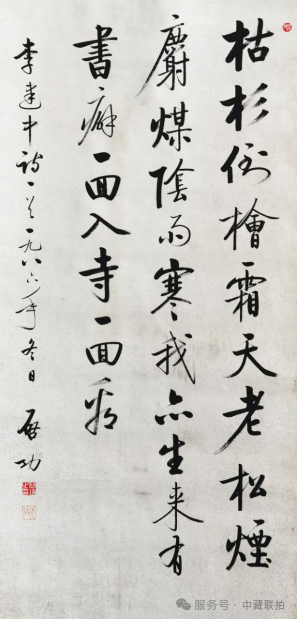 枯杉倒檜霜天老松煙
麝煤陰雨寒我亦生来有
書癖一回入寺一回看
李建中詩一首一九八六年冬日 启功
服务号·中藏联拍